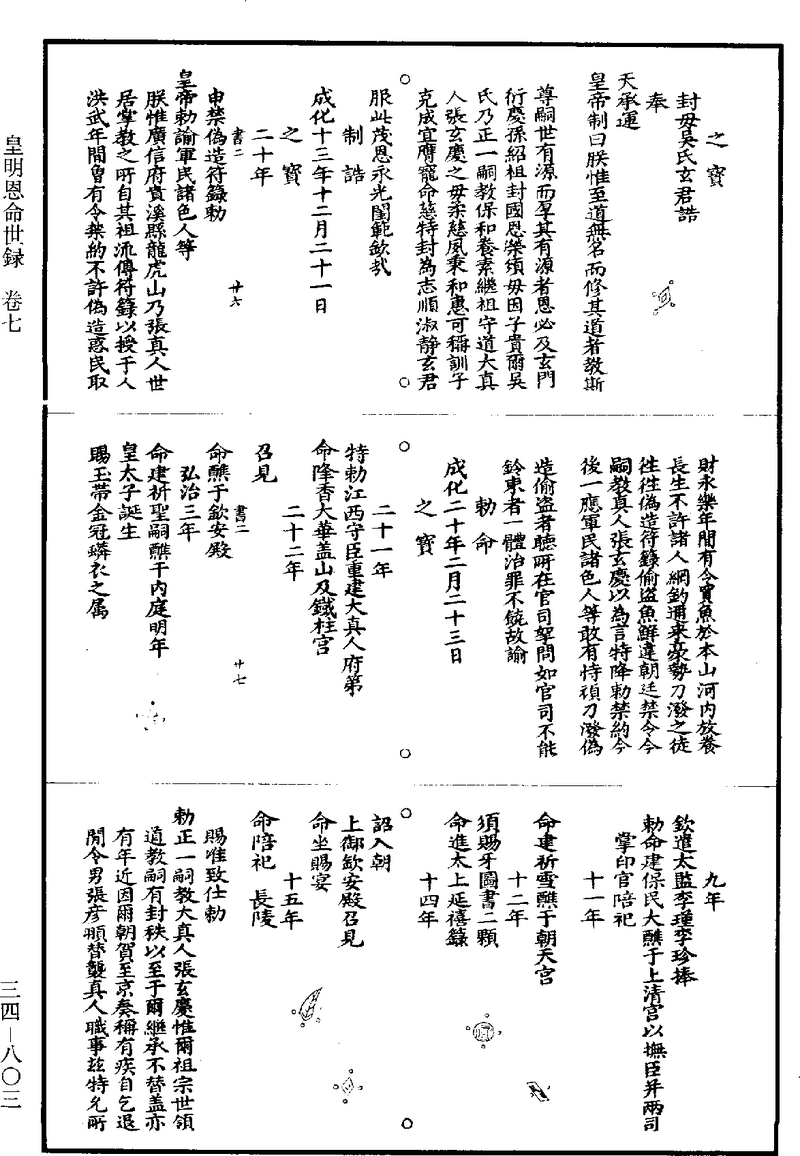 皇明恩命世録　卷七
三四－八〇三
之寶
封母吳氏玄君誥
奉
天承運
皇帝制曰朕惟至道無名而修其道者教斯
尊嗣世有源而孕其有源者恩必及玄門
衍慶孫紹祖封國恩榮頌母因子貴爾吳
氏乃正一嗣教保和養素繼祖守道大真
人張玄慶之母柔慈風秉和惠可稱訓子
克成宜膺寵命慈特封為志順淑静玄君
服此茂恩永光閨範欽哉
制誥
成化十三年十二月二十一日
之寶
二十年
書二　廿六
申禁偽造符籙勅
皇帝勅諭軍民諸色人等
朕惟廣信府貴溪縣龍虎山乃張真人世
居掌教之所自其祖流傳符籙以授于人
洪武年間曾有令禁約不許偽造惑民取
財永樂年間有令買魚於本山河内放養
長生不許諸人網釣邇來豪勢刀潑之徒
徃徃偽造符籙偷盗魚鮮違朝廷禁令今
嗣教真人張玄慶以為言特降勅禁約今
後一應軍民諸色人等敢有恃頑刀潑偽
造偷盗者聽所在官司拏問如官司不能
鈐束者一體治罪不饒故諭
勅命
成化二十年二月二十三日
之寶
二十一年
特勅江西守臣重建大真人府第
命降香大華盖山及鐵柱宫
二十二年
召見
書二　廿七
命醮于欽安殿
弘治三年
命建祈聖嗣醮于内庭明年
皇太子誕生
賜玉帶金冠蟒衣之属
九年
欽遣太監李瑾李珍捧
勅命建保民大醮于上清宫以撫臣并兩司
掌印官陪祀
十一年
命建祈雪醮于朝天宫
十二年
須賜牙圖書二顆
命進太上延禧籙
十四年
詔入朝
上御欽安殿召見
命坐賜宴
十五年
命陪祀　長陵
賜准致仕勅
勅正一嗣教大真人張玄慶惟爾祖宗世領
道教嗣有封秩以至于爾繼承不替盖亦
有年近因爾朝賀至京奏稱有疾自乞退
閒令男張彦頨替襲真人職事兹特允所